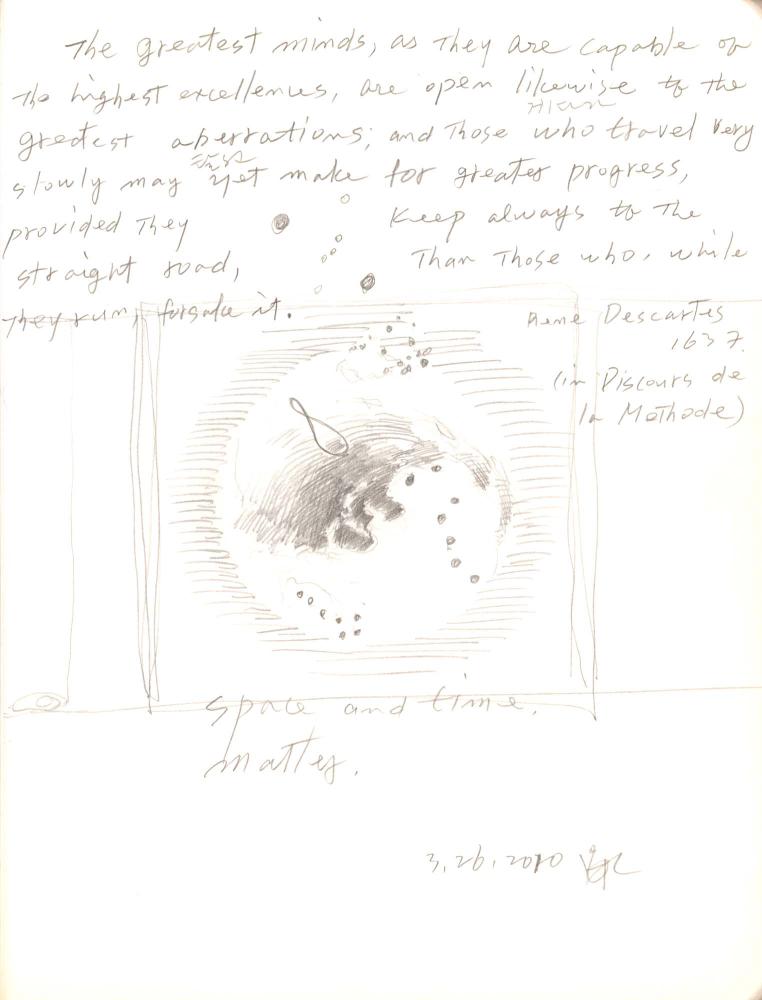 The greatest minds, as They are capable of
The highest excellences, are open likewise to the
greatest aberrations; and Those who travel very
slowly may yet make for greater progress,
provided They Keep always to The
straight road, Than Those who, while
They run, forsake it.
Rene Descartes
1637.
(in Discours de
la Mothode)
space and time.
matter.
3.26.2010